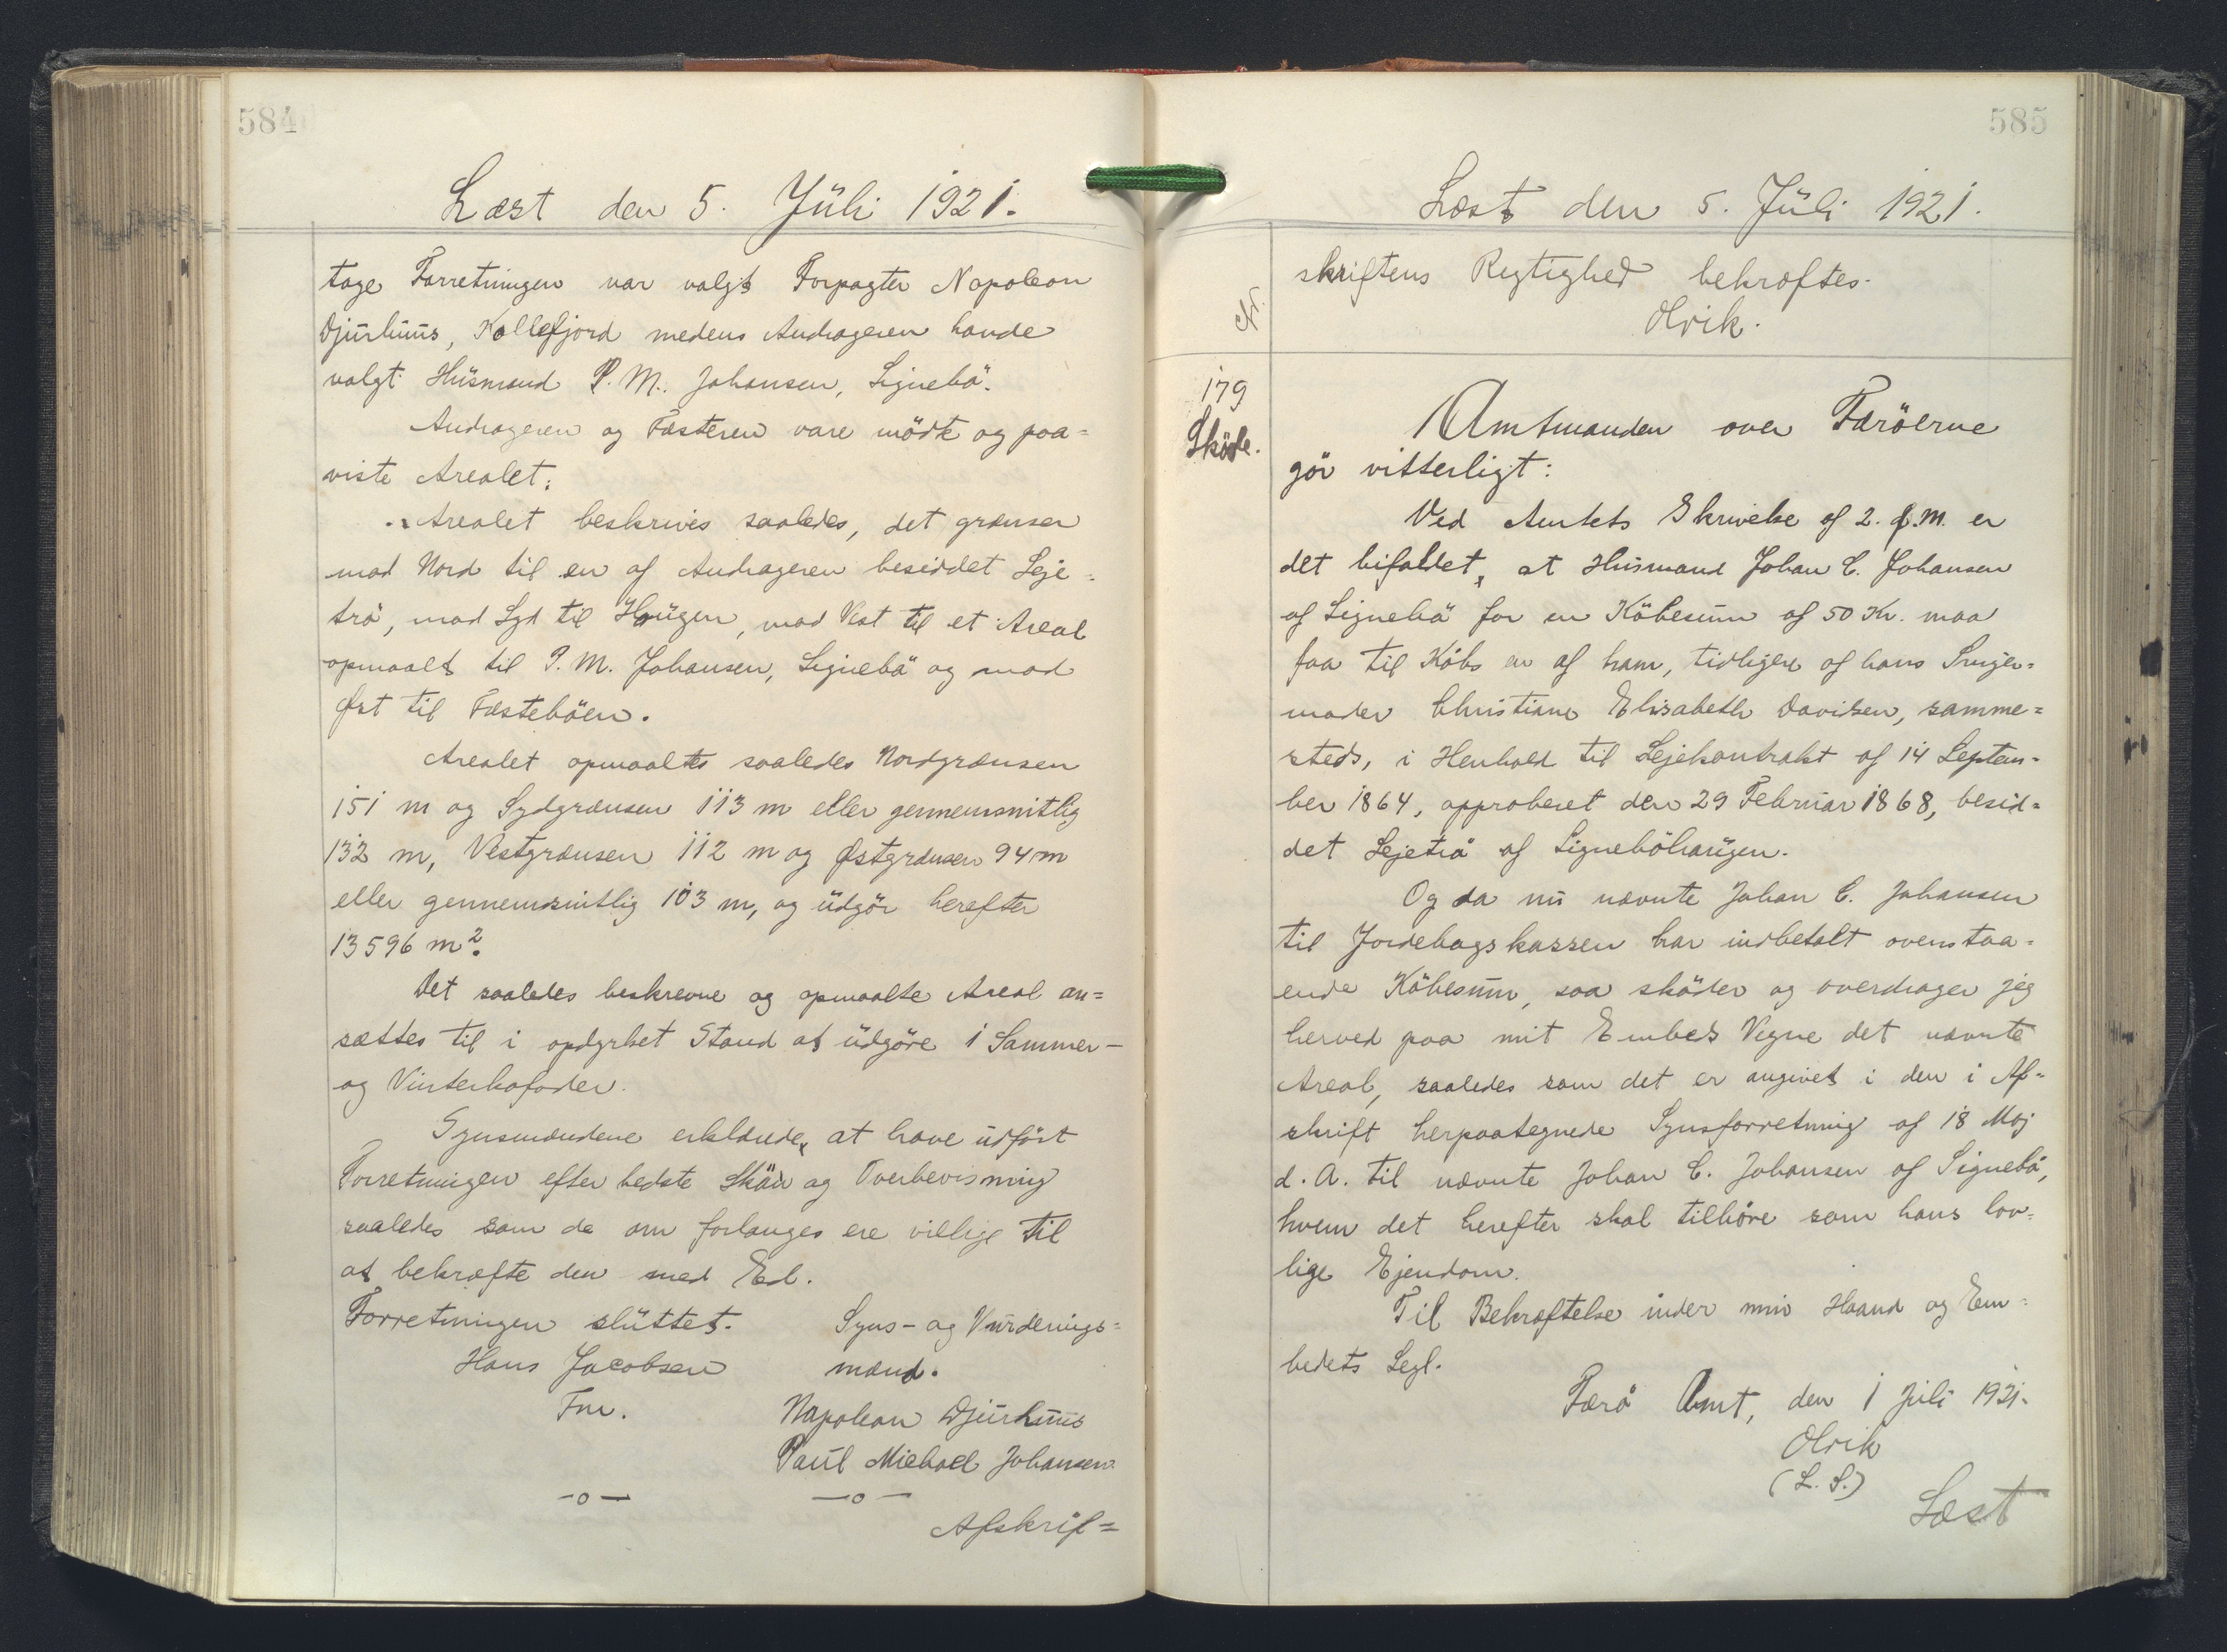 584
Læst den 5. Jüli 1921.
tage Forretningen var valgt Forpagter Napoleon
Djürhüüs, Kollefjord medens Andrageren havde
valgt Hüsmand P. M. Johansen, Signebö.
Andrageren og Fæsteren vare mödt og paa=
viste Arealet.
Arealet beskrives saaledes, det grænser
mod Nord til en af Andrageren besiddet Leje=
trö, mod Syd til Haügen, mod Vest til et Areal
opmaalt til P. M. Johansen, Signebö og mod
Øst til Fæsteböen.
Arealet opmaaltes saaledes Nordgrænsen
151 m og Sydgrænsen 113 m eller gennemsnitlig
132 m, Vestgrænsen 112 m og Østgrænsen 94 m
eller gennemsnitlig 103 m, og üdgör herefter
13596 m².
Det saaledes beskrevne og opmaalte Areal an=
sættes til i opdyrket Stand at üdgöre 1 Sommer-
og Vinterkofoder.
Synsmændene erklærede, at have üdfört
Forretningen efter bedste Skön og Overbevisning
saaledes som de om forlanges ere villige til
at bekræfte den med Ed.
Forretningen slüttet. Syns- og Vürderings=
Hans Jacobsen mænd.
Fm. Napoleon Djürhüüs
Paül Michael Johansen
-o- -o-
Afskrif=
585
Læst den 5. Jüli 1921.
skriftens Rigtighed bekræftes.
Olrik.
Nr.
179
Sköde.
Amtmanden over Færöerne
gör vitterligt:
Ved Amtets Skrivelse af 2. f.M. er
det bifaldet, at Hüsmand Johan C. Johansen
af Signebö for en Köbesüm af 50 Kr. maa
faa til Köbs en af ham, tidligere af hans Sviger=
moder Christiane Elisabeth Davidsen, samme=
steds, i Henhold til Lejekontrakt af 14 Septem=
ber 1864, approberet den 29 Februar 1868, besid=
det Lejetrö af Signeböhaügen.
Og da nü nævnte Johan C. Johansen
til Jordebogskassen har indbetalt ovenstaa=
ende Köbesüm, saa sköder og overdrager jeg
herved paa mit Embeds Vegne det nævnte
Areal, saaledes som det er angivet i den i Af=
skrift herpaategnede Synsforretning af 18 Maj
d. A. til nævnte Johan C. Johansen af Signebö,
hvem det herefter skal tilhöre som hans lov=
lige Ejendom.
Til Bekræftelse ünder min Haand og Em=
bedets Segl.
Færö Amt, den 1 Jüli 1921.
Olrik
(L. S.)
Læst